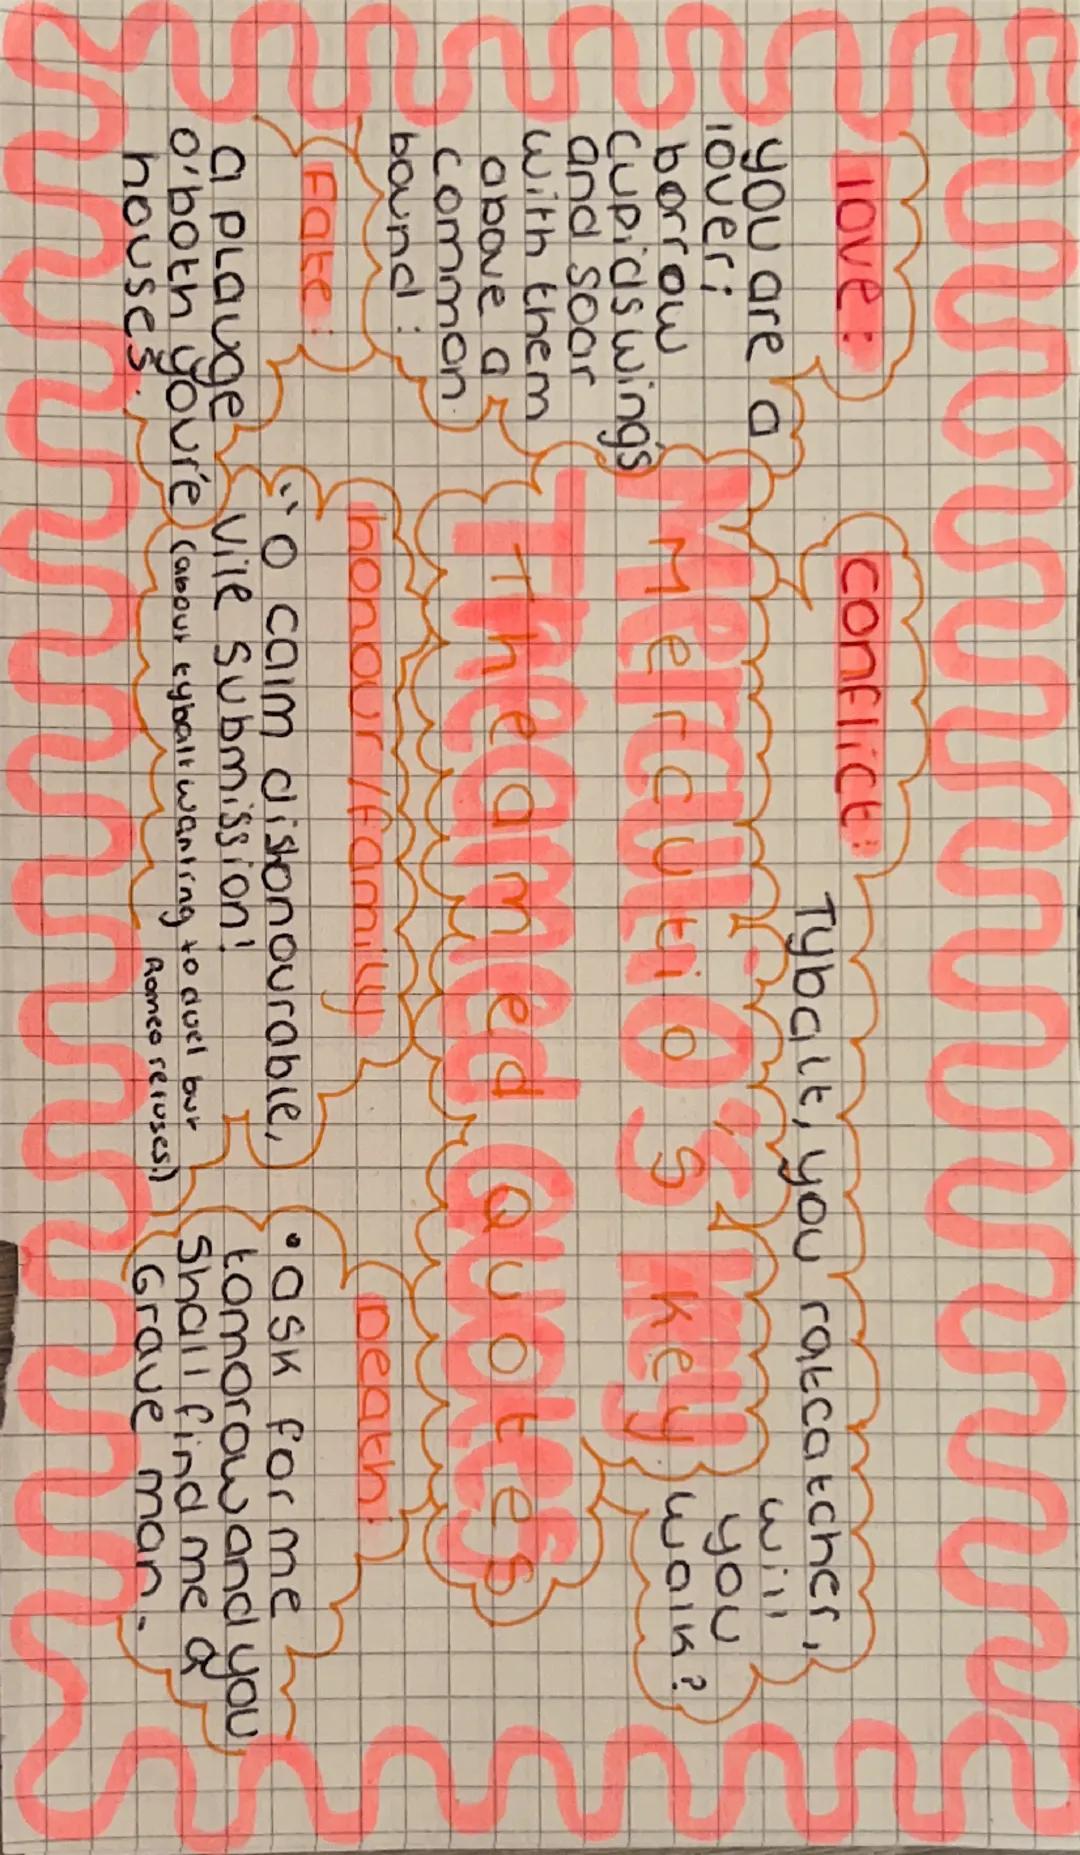 Mercutio's key
Theamed Quotes
love:
you are a
lover;
borrow
cupids wings
and soar
with them
above a
common
bound:
conflict:
Tybalt, you ratcatcher,
will
you
walk?
Fate:
a plauge
o'both you're
houses.
honour/family
"O calm dishonourable,
vile submission!
(about tybalt wanting to duel but
Romeo refuses!)
Death:
• ask for me
tomorow and you
Shall find me a
Grave man.